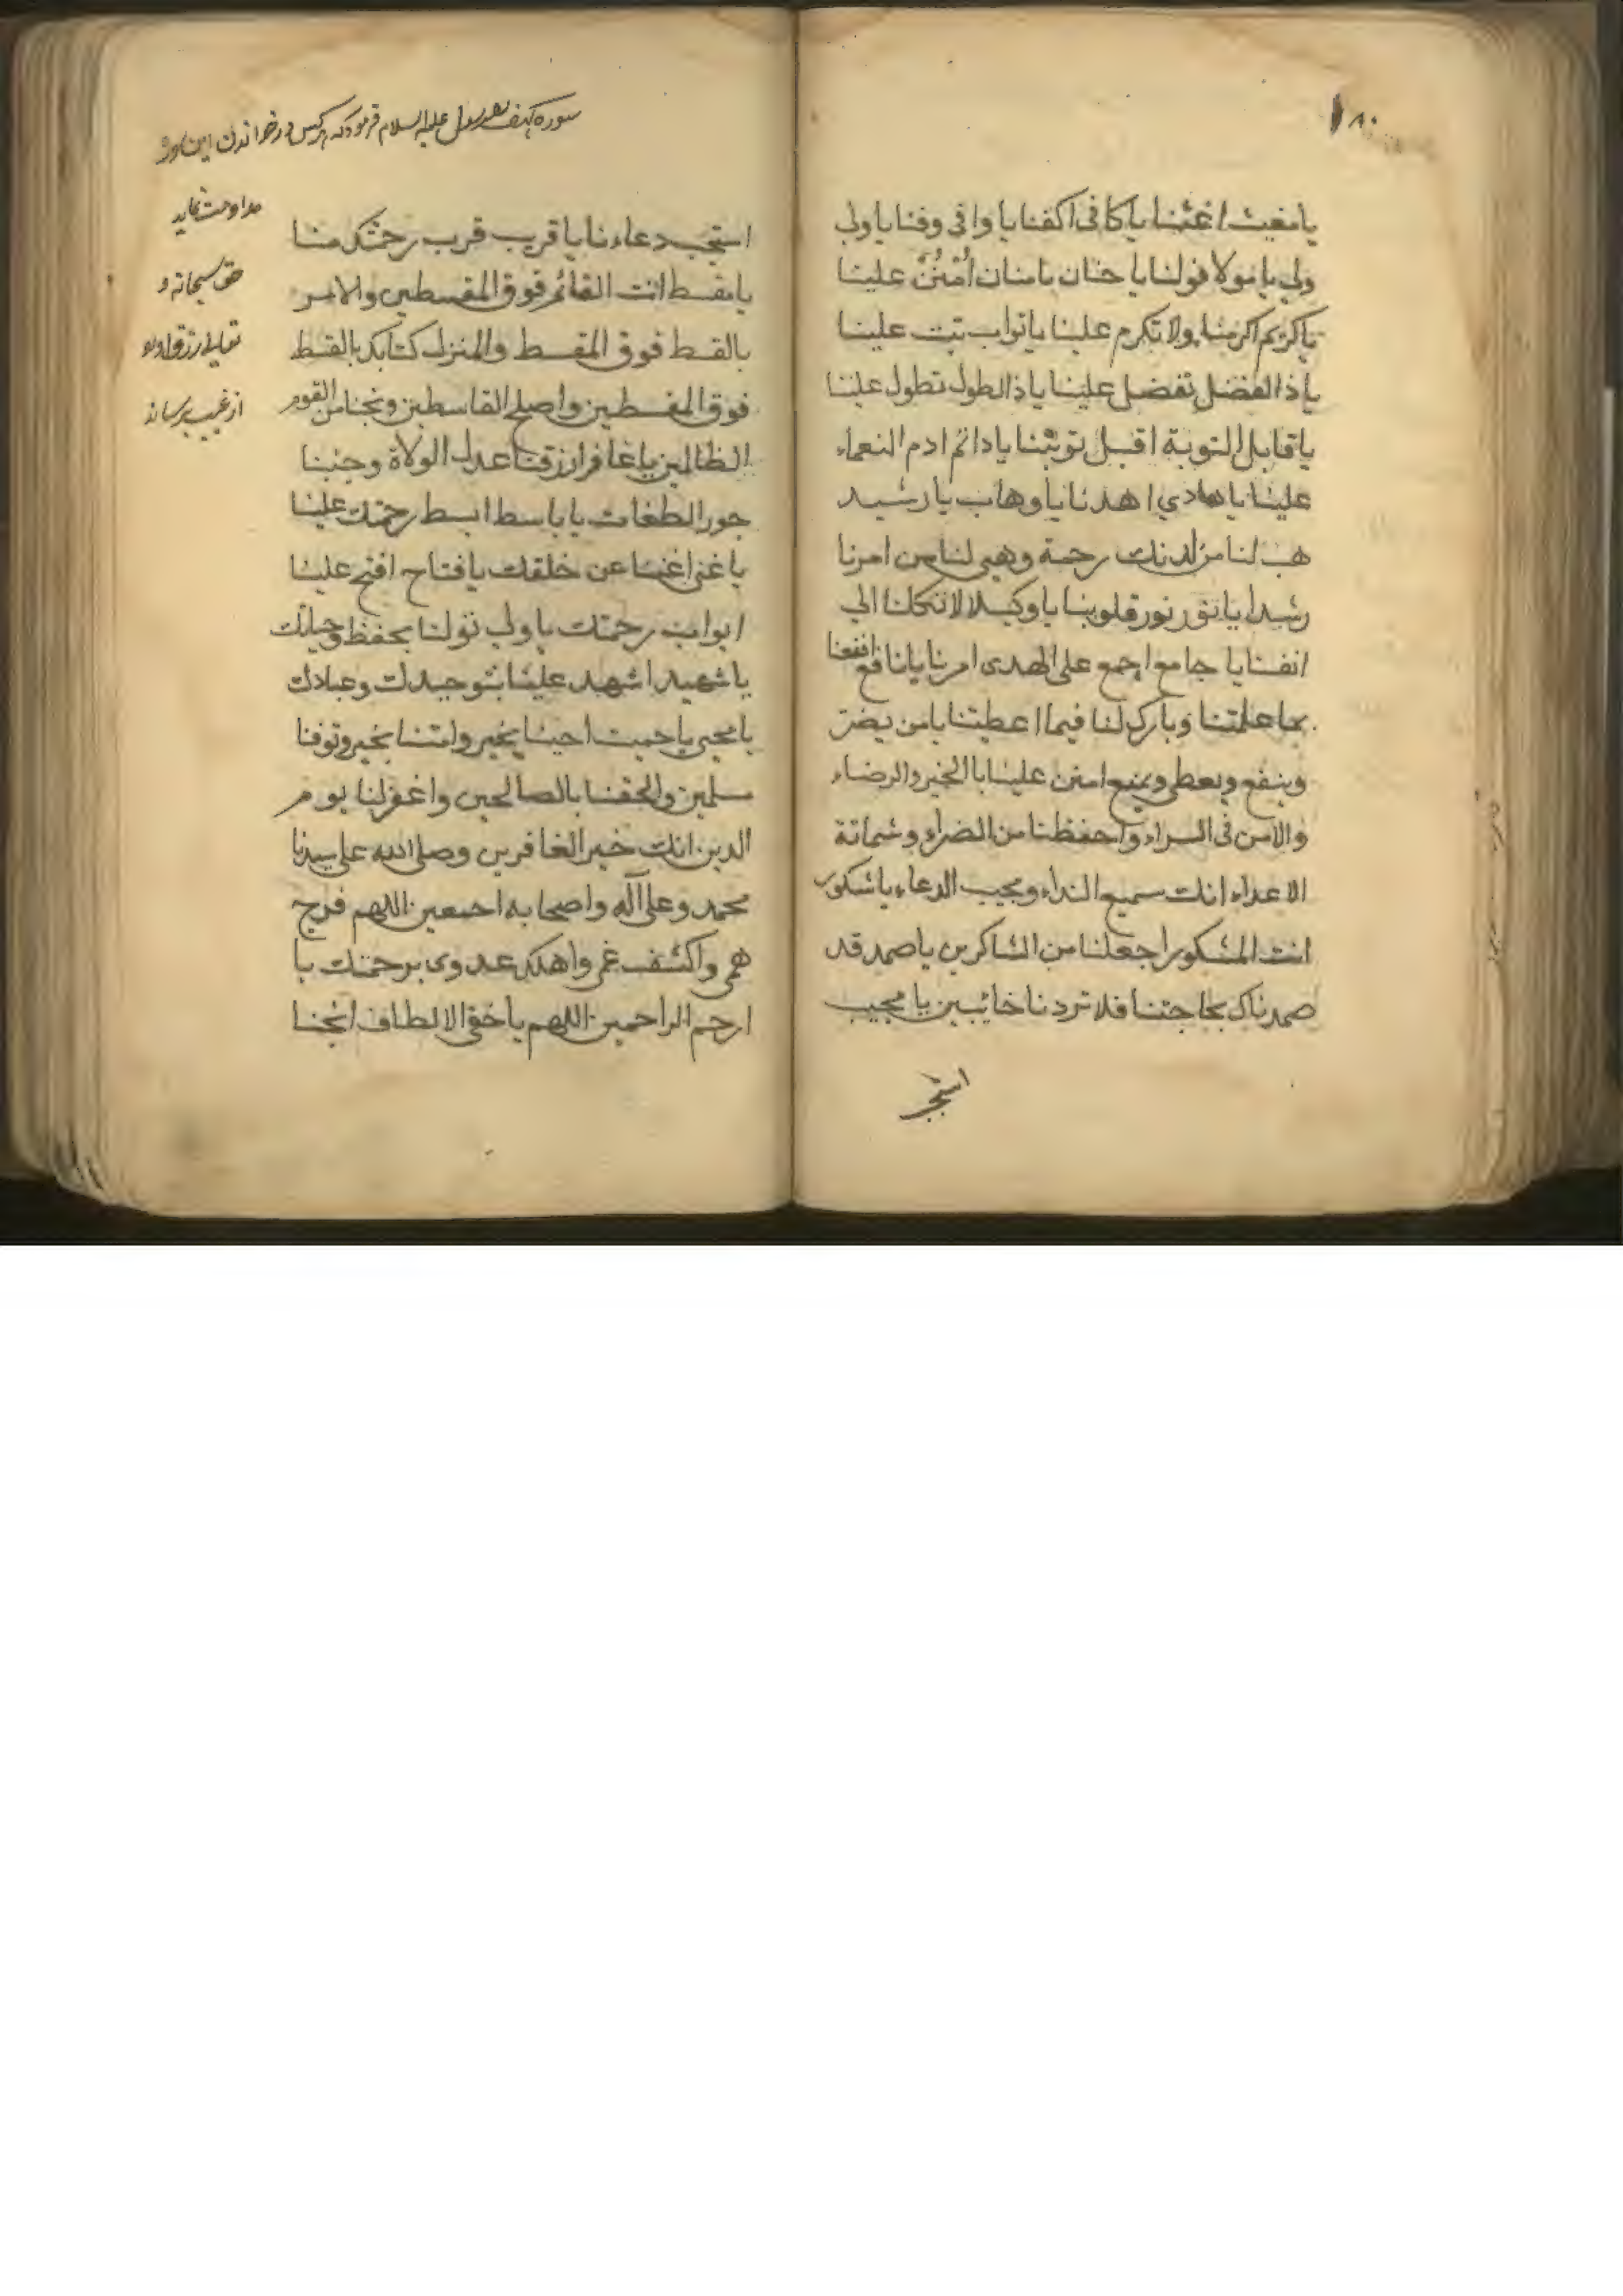 ٨٠
يا مغيث اغثنا يا كافى اكفنا يا وافى وفنا يا ولي
ولي يا مولا فولنا يا حنان يا منان اُمْنُنْ علينا
يا كريم اكرمنا ولا تكرم علينا يا تواب تبت علينا
يا ذا الفضل تفضل علينا يا ذا الطول تطول علينا
يا قابل التوبة اقبل توبتنا يا دائم ادم النعماء
علينا يا هادي اهدنا يا وهاب يا رشيد
هب لنا من لدنك رحمة وهيى لنا من امرنا
رشدا يا نور نور قلوبنا يا وكيلا لا تكلنا الي
انفسنا يا جامع اجمع على الهدى امرنا يا نافع انفعنا
بما علمتنا وبارك لنا فيما اعطيتنا يا من يضر
وينفع ويعطى ويمنع امنن علينا بالخير والرضاء
والامن فى السراء واحفظنا من الضراء وشماتة
الاعداء انك سميع النداء ومجيب الدعاء يا شكور
انت المشكور اجعلنا من الشاكرين يا صمد قد
صمدناك بحاجتنا فلا تردنا خائبين يا مجيب
استجب
سوره كهف رسول عليه السلام فرمود كه هركس در خواندن اين سوره
مداومت نمايد
حق سبحانه و
تعالى رزق اورا
از غيب برساند
استجب دعاءنا يا قريب قرب رحمتك منا
يا مقسط انت القائم فوق المقسطين والامر
بالقسط فوق المقسط والمنزل كتابك بالقسط
فوق المقسطين واصلح القاسطين ونجنا من القوم
الظالمين يا غافر ارزقنا عدل الولاة وجنبنا
جور الطغات يا باسط ابسط رحمتك علينا
يا غنى اغننا عن خلقك يا فتاح افتح علينا
ابواب رحمتك يا ولي تولنا بحفظ وحيلك
يا شهيد اشهد علينا بتوحيدك وعبادك
يا محيى يا حميت احينا بخير وامتنا بخير وتوفنا
مسلمين والحقنا بالصالحين واغفر لنا يوم
الدين انك خير الغافرين وصلى الله على سيدنا
محمد وعلى آله واصحابه اجمعين اللهم فرج
همى واكشف غمى واهلك عدوى برحمتك يا
ارحم الراحمين اللهم يا خفى الالطاف انجنا